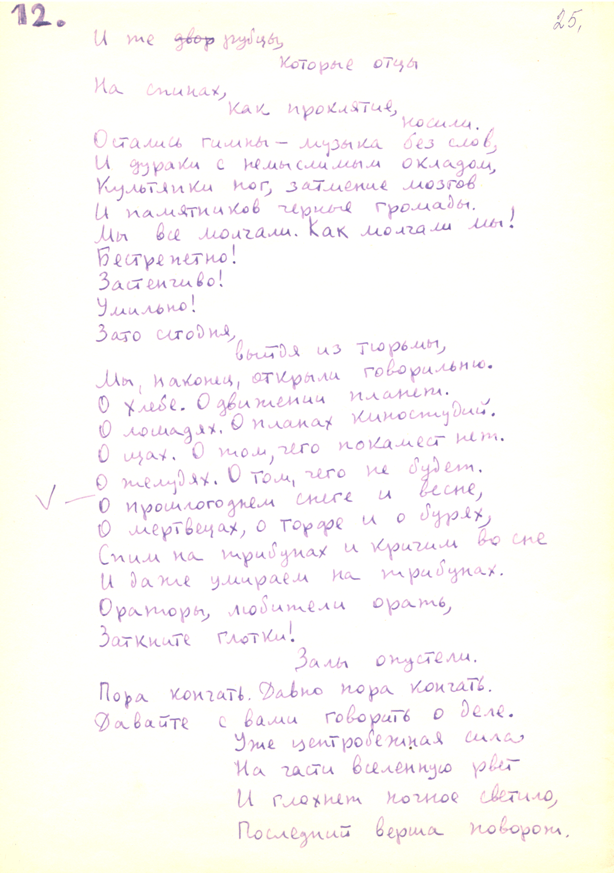 12.
25.
И те двор рубцы,
Которые отцы
На спинах,
как проклятие,
носили.
Остались гимны – музыка без слов,
И дураки с немыслимым окладом,
Культяпки ног, затмение мозгов
И памятников черные громады.
Мы все молчали. Как молчали мы!
Бестрепетно!
Застенчиво!
Умильно!
Зато сегодня,
выйдя из тюрьмы,
Мы, наконец, открыли говорильню.
О хлебе. О движении планет.
О лошадях. О планах киностудий.
О щах. О том, чего покамест нет.
О желудях. О том, чего не будет.
О прошлогоднем снеге и весне,
О мертвецах, о торфе и о бурях,
Спим на трибунах и кричим во сне
И даже умираем на трибунах.
Ораторы, любители орать,
Заткните глотки!
Залы опустели.
Пора кончать. Давно пора кончать.
Давайте с вами говорить о деле.
Уже центробежная сила
На части вселенную рвет
И глохнет ночное светило,
Последний верша поворот.